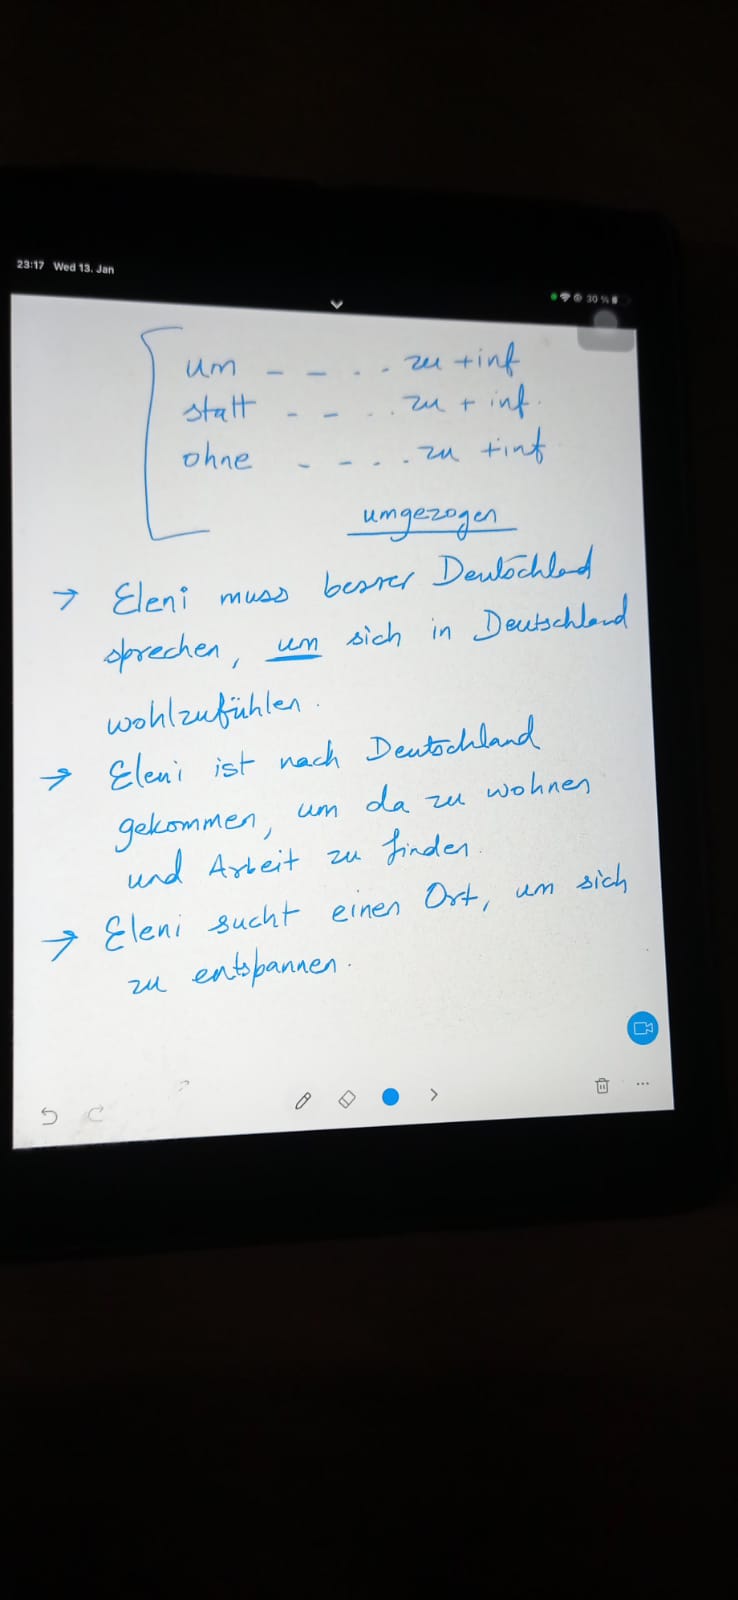 23:17 Wed 13. Jan
30 %
um _ _ . . zu + inf
statt - - . . zu + inf.
ohne - - . . . zu + inf
umgezogen
→ Eleni muss besser Deutschland
sprechen, um sich in Deutschland
wohlzufühlen.
→ Eleni ist nach Deutschland
gekommen, um da zu wohnen
und Arbeit zu finden.
→ Eleni sucht einen Ort, um sich
zu entspannen.